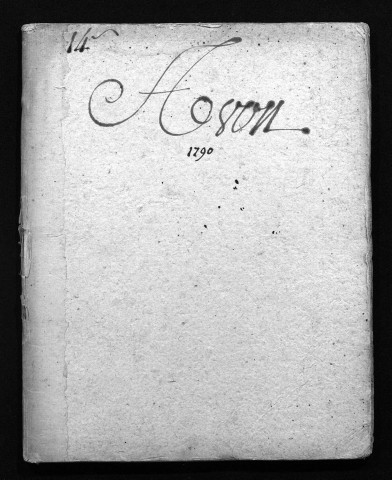 14
Avon
1790